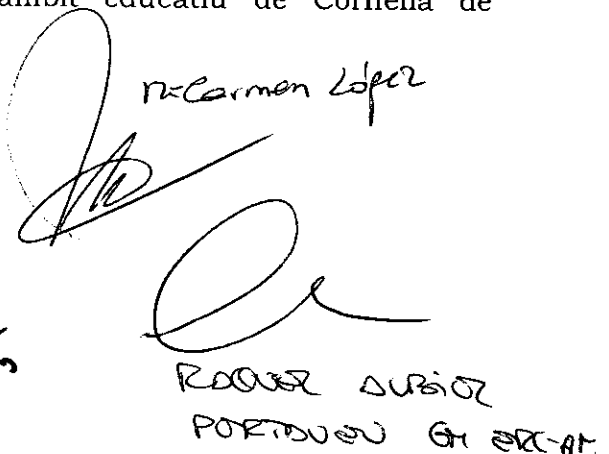 àmbit educatiu de Cornellà de
Mª Carmen López
RAQUEL ALBIOL
PORTAVEU GM ERC-AM